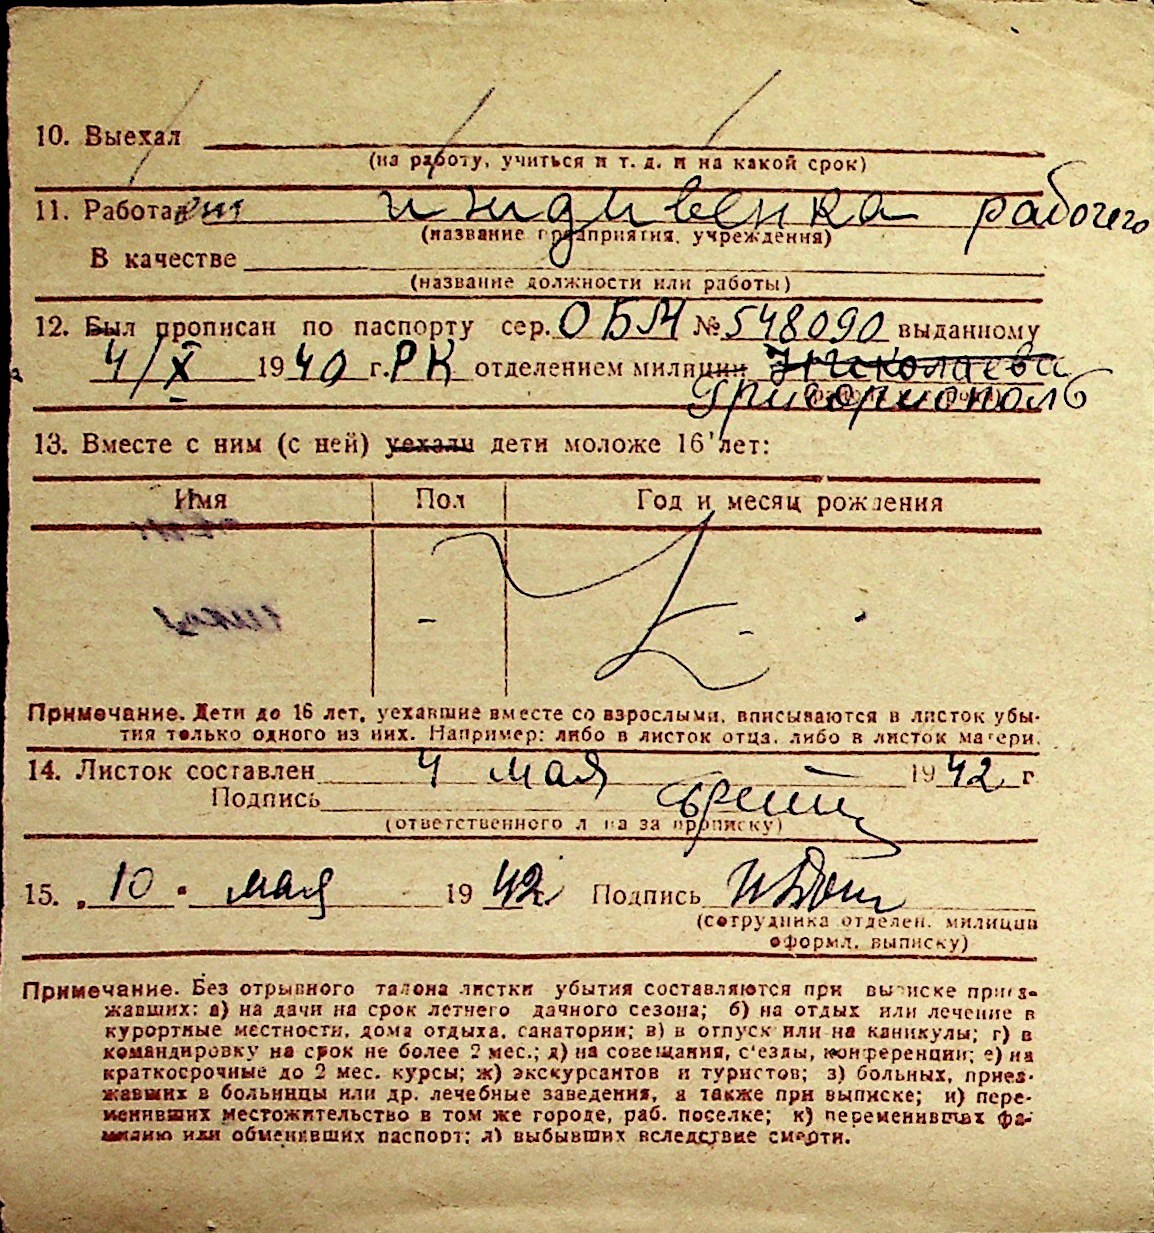 10. Выехал
(на работу, учиться и т. д. и на какой срок)
11. Работает иждивенка рабочего
(название предприятия, учреждения)
В качестве
(название должности или работы)
12. Был прописан по паспорту сер. ОБМ № 548090 выданному
4/X 1940 г. РК отделением милиции Николаева
Григориополь
13. Вместе с ним (с ней) уехали дети моложе 16 лет:
Имя Пол Год и месяц рождения
- -
Примечание. Дети до 16 лет, уехавшие вместе со взрослыми, вписываются в листок убы-
тия только одного из них. Например: либо в листок отца, либо в листок матери.
14. Листок составлен 4 мая 1942 г
Подпись
(ответственного лица за прописку)
15. „10" мая 1942 Подпись
(сотрудника отделен. милиции
оформл. выписку)
Примечание. Без отрывного талона листки убытия составляются при выписке приез-
жавших: а) на дачи на срок летнего дачного сезона; б) на отдых или лечение в
курортные местности, дома отдыха, санатории; в) в отпуск или на каникулы; г) в
командировку на срок не более 2 мес.; д) на совещания, с'езды, конференции; е) на
краткосрочные до 2 мес. курсы; ж) экскурсантов и туристов; з) больных, приез-
жавших в больницы или др. лечебные заведения, а также при выписке; и) пере-
менивших местожительство в том же городе, раб. поселке; к) переменивших фа-
милию или обменявших паспорт; л) выбывших вследствие смерти.